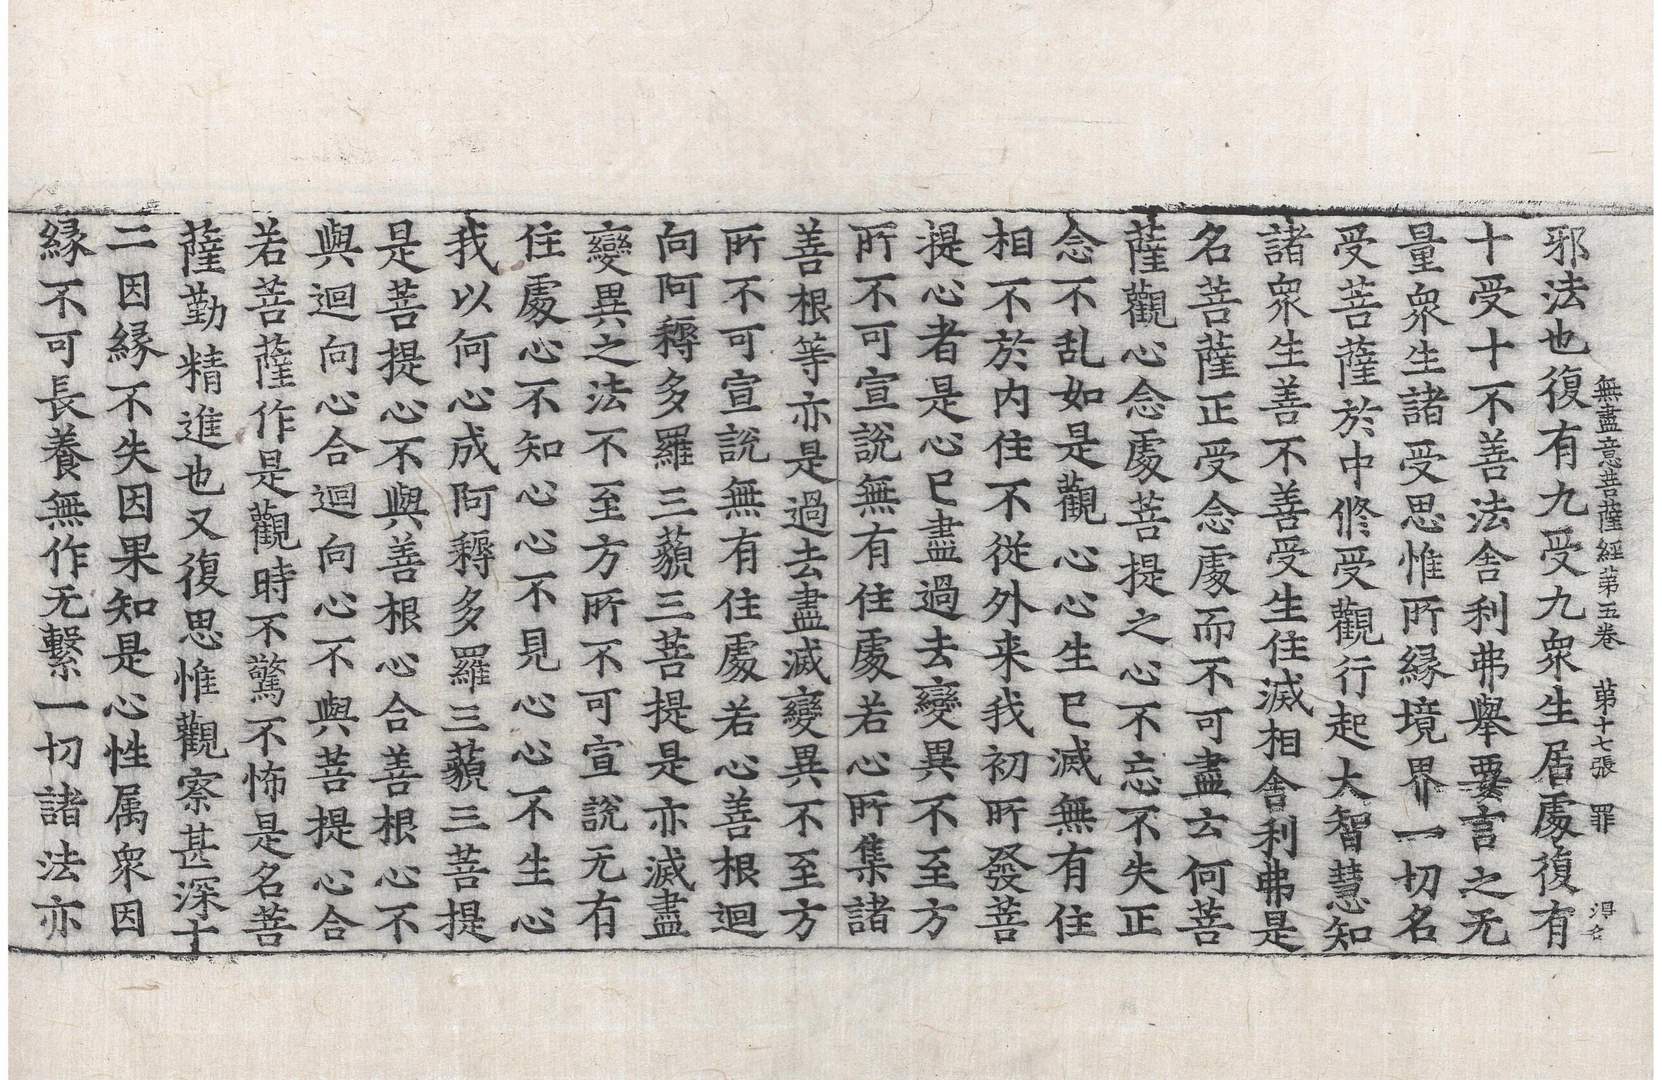 無盡意菩薩經苐五卷 苐十七張 罪 淂名
邪法也復有九受九衆生居處復有
十受十不善法舎利弗舉要言之无
量衆生諸受思惟所縁境界一切名
受菩薩於中修受觀行起大智慧知
諸衆生善不善受生住滅相舎利弗是
名菩薩正受念處而不可盡云何菩
薩觀心念處菩提之心不忘不失正
念不乱如是觀心心生已滅無有住
相不於内住不從外来我初所發菩
提心者是心已盡過去變異不至方
所不可宣說無有住處若心所集諸
善根等亦是過去盡滅變異不至方
所不可宣說無有住處若心善根迴
向阿耨多羅三藐三菩提是亦滅盡
變異之法不至方所不可宣說无有
住處心不知心心不見心心不生心
我以何心成阿耨多羅三藐三菩提
是菩提心不與善根心合善根心不
與迴向心合迴向心不與菩提心合
若菩薩作是觀時不驚不怖是名菩
薩勤精進也又復思惟觀察甚深十
二因縁不失因果知是心性属衆因
縁不可長養無作无繫一切諸法亦